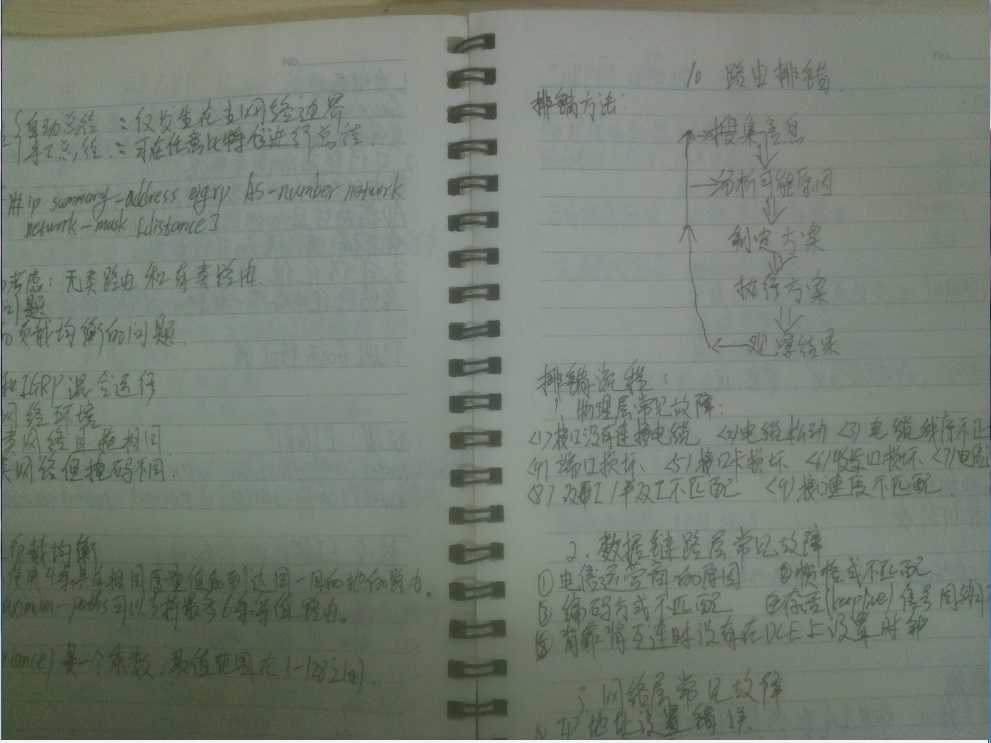 NO.
自动总结：仅发生在主网络边界
手工总结：可在任意比特位进行总结
# ip summary-address eigrp AS-number network
network-mask [distance]
考虑：无类路由和有类路由
问题
负载均衡的问题
和IGRP混合运行
网络环境
类网络且掩码相同
类网络但掩码不同.
负载均衡
使用4条具有相同度量值的到达同一目的地的路由
可以支持最多6条等值路由.
是一个系数,取值范围在1-128之间.
NO.
10 路由排错
排错方法:
搜集信息
分析可能原因
制定方案
执行方案
观察结果
排错流程:
1. 物理层常见故障:
<1>接口没有连接电缆 <2>电缆松动 <3>电缆线序不正
<4>端口损坏、<5>接口卡损坏 <6>收发口损坏、<7>电缆
<8>双工/半双工不匹配 <9>接口速度不匹配.
2. 数据链路层常见故障
①电信运营商的原因 ②帧格式不匹配
③编码方式不匹配 ④存活(keeplive)信号
⑤背靠背互连时没有在DCE上设置时钟
3 网络层常见故障
IP地址设置错误